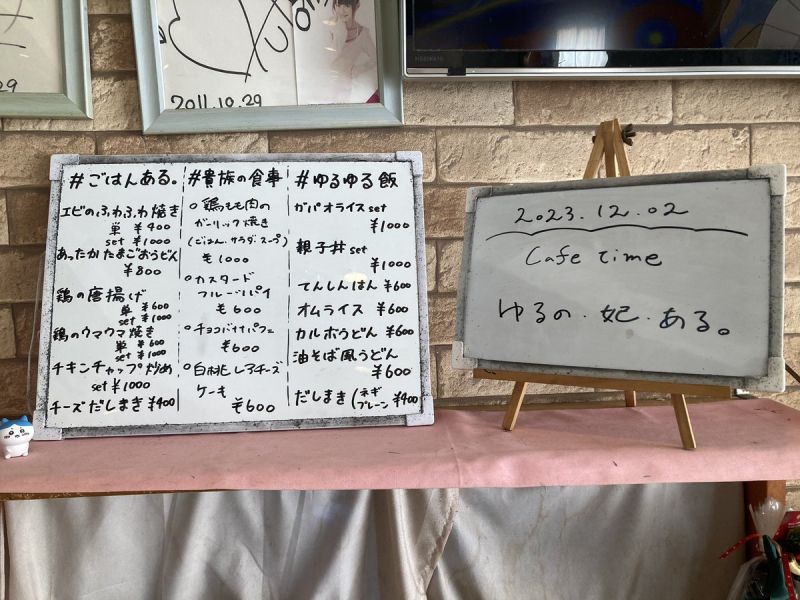 2011.10.29
#ごはんある。
エビのふわふわ焼き
単 ¥400
set ¥1000
あったかたまごおうどん
¥800
鶏の唐揚げ
単 ¥600
set ¥1000
鶏のウマウマ焼き
単 ¥600
set ¥1000
チキンチャップ炒め
set ¥1000
チーズだしまき ¥400
#貴族の食事
○鶏もも肉の
ガーリック焼き
(ごはん、サラダ、スープ)
¥1000
○カスタード
フルーツパイ
¥600
○チョコバナナパフェ
¥600
○白桃レアチーズ
ケーキ
¥600
#ゆるゆる飯
ガパオライス set
¥1000
親子丼 set
¥1000
てんしんはん ¥600
オムライス ¥600
カルボうどん ¥600
油そば風うどん
¥600
だしまき(ネギ
プレーン ¥400
2023.12.02
Cafe time
ゆるの.妃.ある。